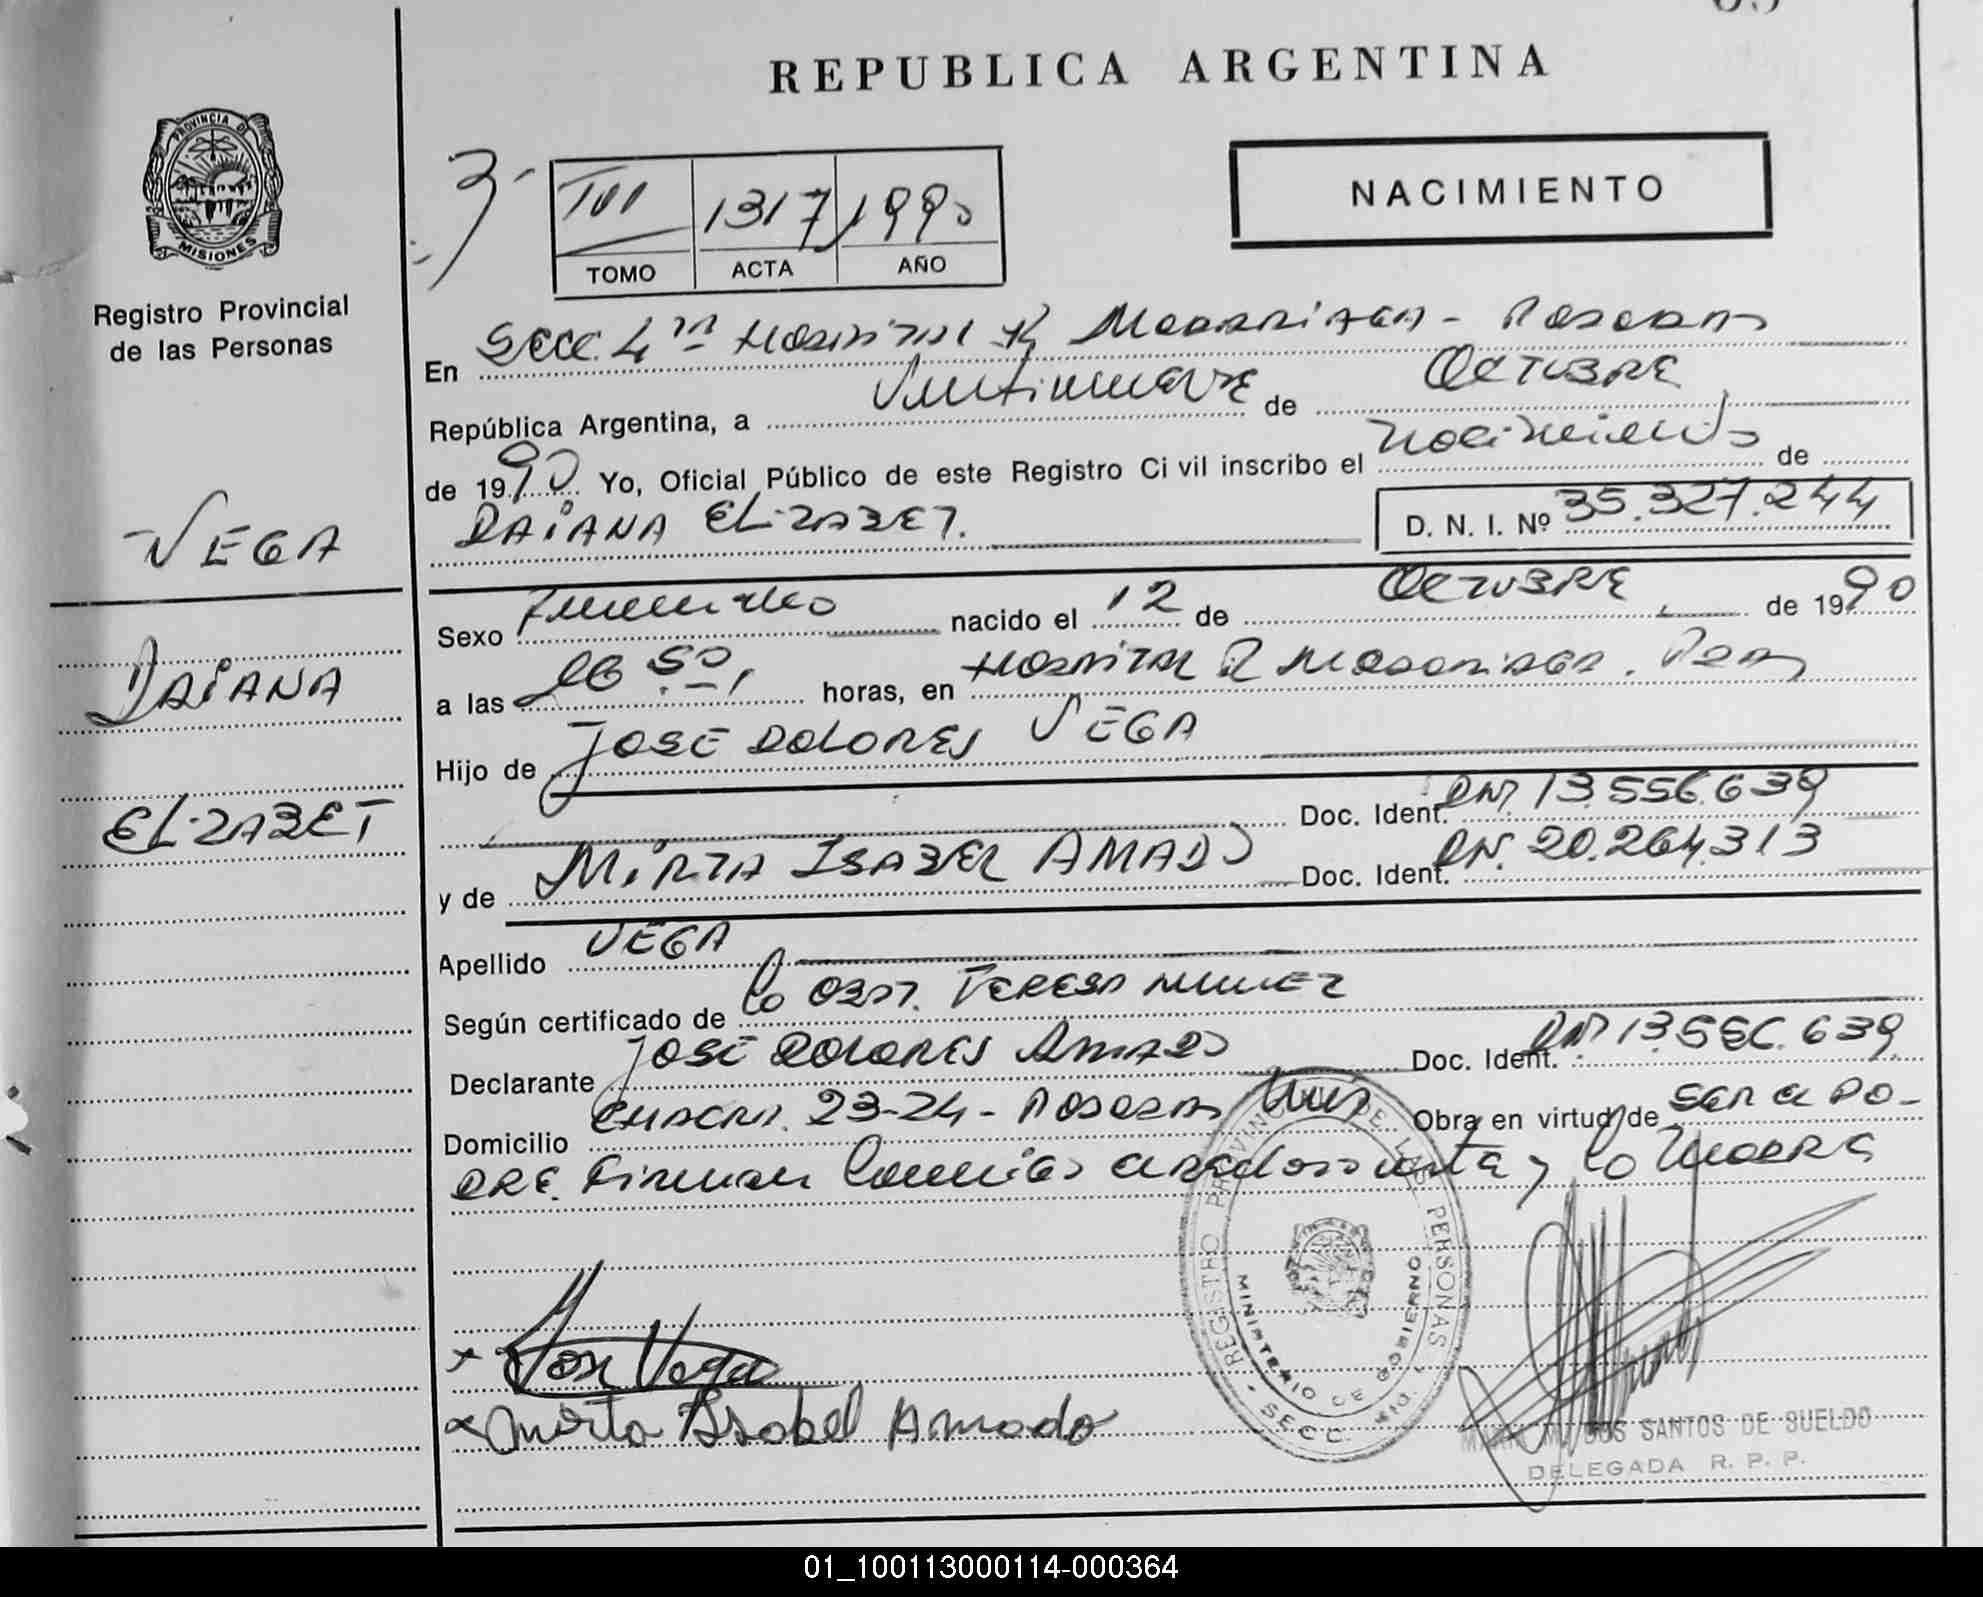 REPUBLICA ARGENTINA
PROVINCIA DE
MISIONES
Registro Provincial
de las Personas
3-
TOMO III ACTA 1317 AÑO 1990
NACIMIENTO
En Secc. 4ta Hospital R Madariaga - Posadas
República Argentina, a Veintinueve de OCTUBRE
de 1990 Yo, Oficial Público de este Registro Civil inscribo el nacimiento de
DAIANA ELIZABET. D. N. I. Nº 35.327.244
VEGA
DAIANA
ELIZABET
Sexo Femenino nacido el 12 de OCTUBRE de 1990
a las 50 horas, en HOSPITAL R Madariaga. Pdas
Hijo de JOSE DOLORES VEGA
Doc. Ident. DNI 13.556.639
y de MIRTA ISABEL AMADO Doc. Ident. DNI. 20.264.313
Apellido VEGA
Según certificado de la OBST. TERESA NUNEZ
Declarante JOSE DOLORES AMADO Doc. Ident. DNI 13.556.639
Domicilio CHACRA. 23-24 - Posadas Mnes Obra en virtud de ser el PA-
DRE. Firman Conmigo el declarante y la Madre
REGISTRO PROVINCIAL DE LAS PERSONAS
MINISTERIO DE GOBIERNO
SECC.
x Jose Vega
x Mirta Isabel Amado
DOS SANTOS DE SUELDO
DELEGADA R. P. P.
01_100113000114-000364